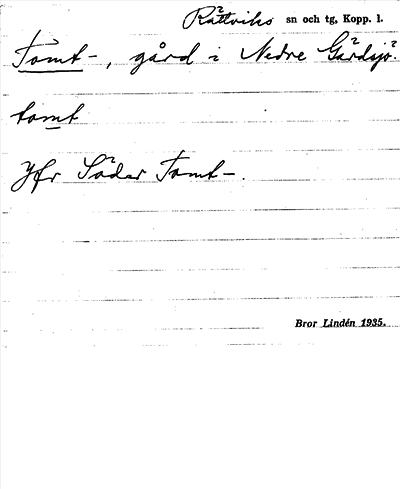 Rättviks sn och tg, Kopp. l.
Tomt-, gård i Nedre Gärdsjö.
tomt
Jfr Söder Tomt-.
Bror Lindén 1935.